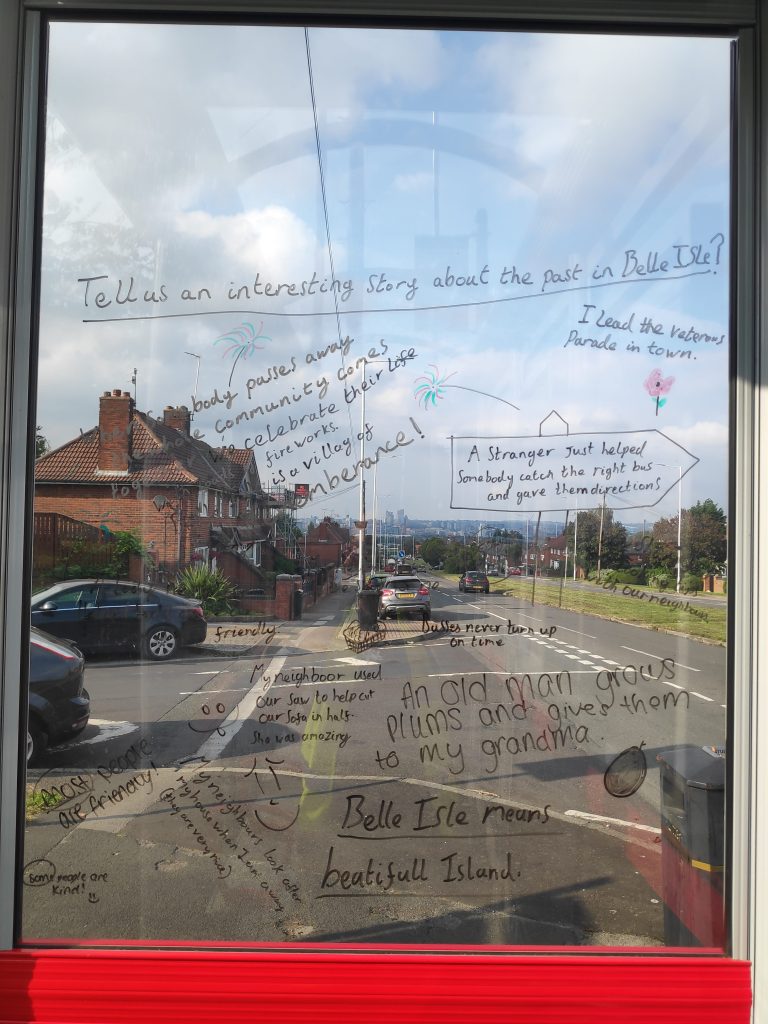 Tell us an interesting story about the past in Belle Isle?
I Lead the veterans
Parade in town.
body passes away
community comes
celebrate their life
fireworks.
is a village of
A Stranger Just helped
Somebody catch the right bus
and gave them directions
with our neighbours
friendly
Busses never turn up
on time
My neighboor used
Our saw to help cut
our sofa in half.
She was amazing
An old man grows
plums and gives them
to my grandma.
most people
are friendly!
My neighbours look after
my house when I am away
(they are very nice)
Belle Isle means
beatifull Island.
Some people are
Kind!